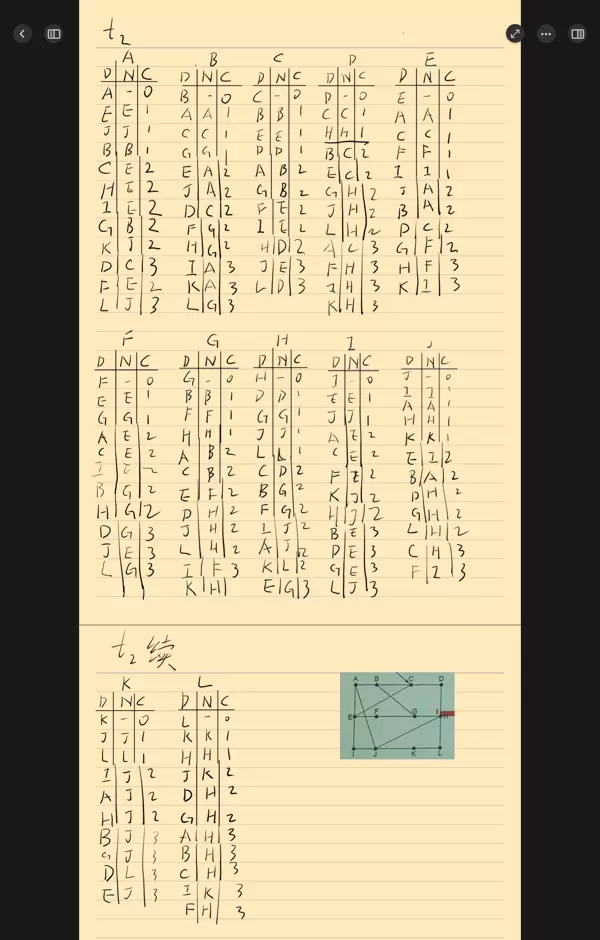 t2
A B C D E
D N C D N C D N C D N C D N C
A - 0 B - 0 C - 0 D - 0 E - 0
E E 1 A A 1 B B 1 C C 1 A A 1
J J 1 C C 1 E E 1 H H 1 C C 1
B B 1 G G 1 D D 1 B C 2 F F 1
C E 2 E A 2 A B 2 E C 2 I I 1
H E 2 J A 2 G B 2 G H 2 J A 2
I E 2 D C 2 F E 2 J H 2 B A 2
G B 2 F G 2 I E 2 L H 2 D C 2
K J 2 H G 2 H D 2 A C 3 G F 2
D C 3 I A 3 J E 3 F H 3 H F 3
F E 2 K A 3 L D 3 I H 3 K I 3
L J 3 L G 3 K H 3
F G H I J
D N C D N C D N C D N C D N C
F - 0 G - 0 H - 0 I - 0 J - 0
E E 1 B B 1 D D 1 E E 1 I I 1
G G 1 F F 1 G G 1 J J 1 A A 1
A E 2 H H 1 J J 1 A E 2 H H 1
C E 2 A B 2 L L 1 C E 2 K K 1
I E 2 C B 2 C D 2 F E 2 E I 2
B G 2 E F 2 B G 2 K J 2 B A 2
H G 2 D H 2 F G 2 H J 2 D H 2
D G 3 J H 2 I J 2 B E 3 G H 2
J E 3 L H 2 A J 2 D E 3 L H 2
L G 3 I F 3 K L 2 G E 3 C H 3
K H E G 3 L J 3 F 2 3
t2 续
K L
D N C D N C
K - 0 L - 0
J J 1 K K 1
L L 1 H H 1
I J 2 J K 2
A J 2 D H 2
H J 2 G H 2
B J 3 A H 3
G J 3 B H 3
D L 3 C H 3
E J 3 I K 3
F H 3
A B C D
E F G H
I J K L